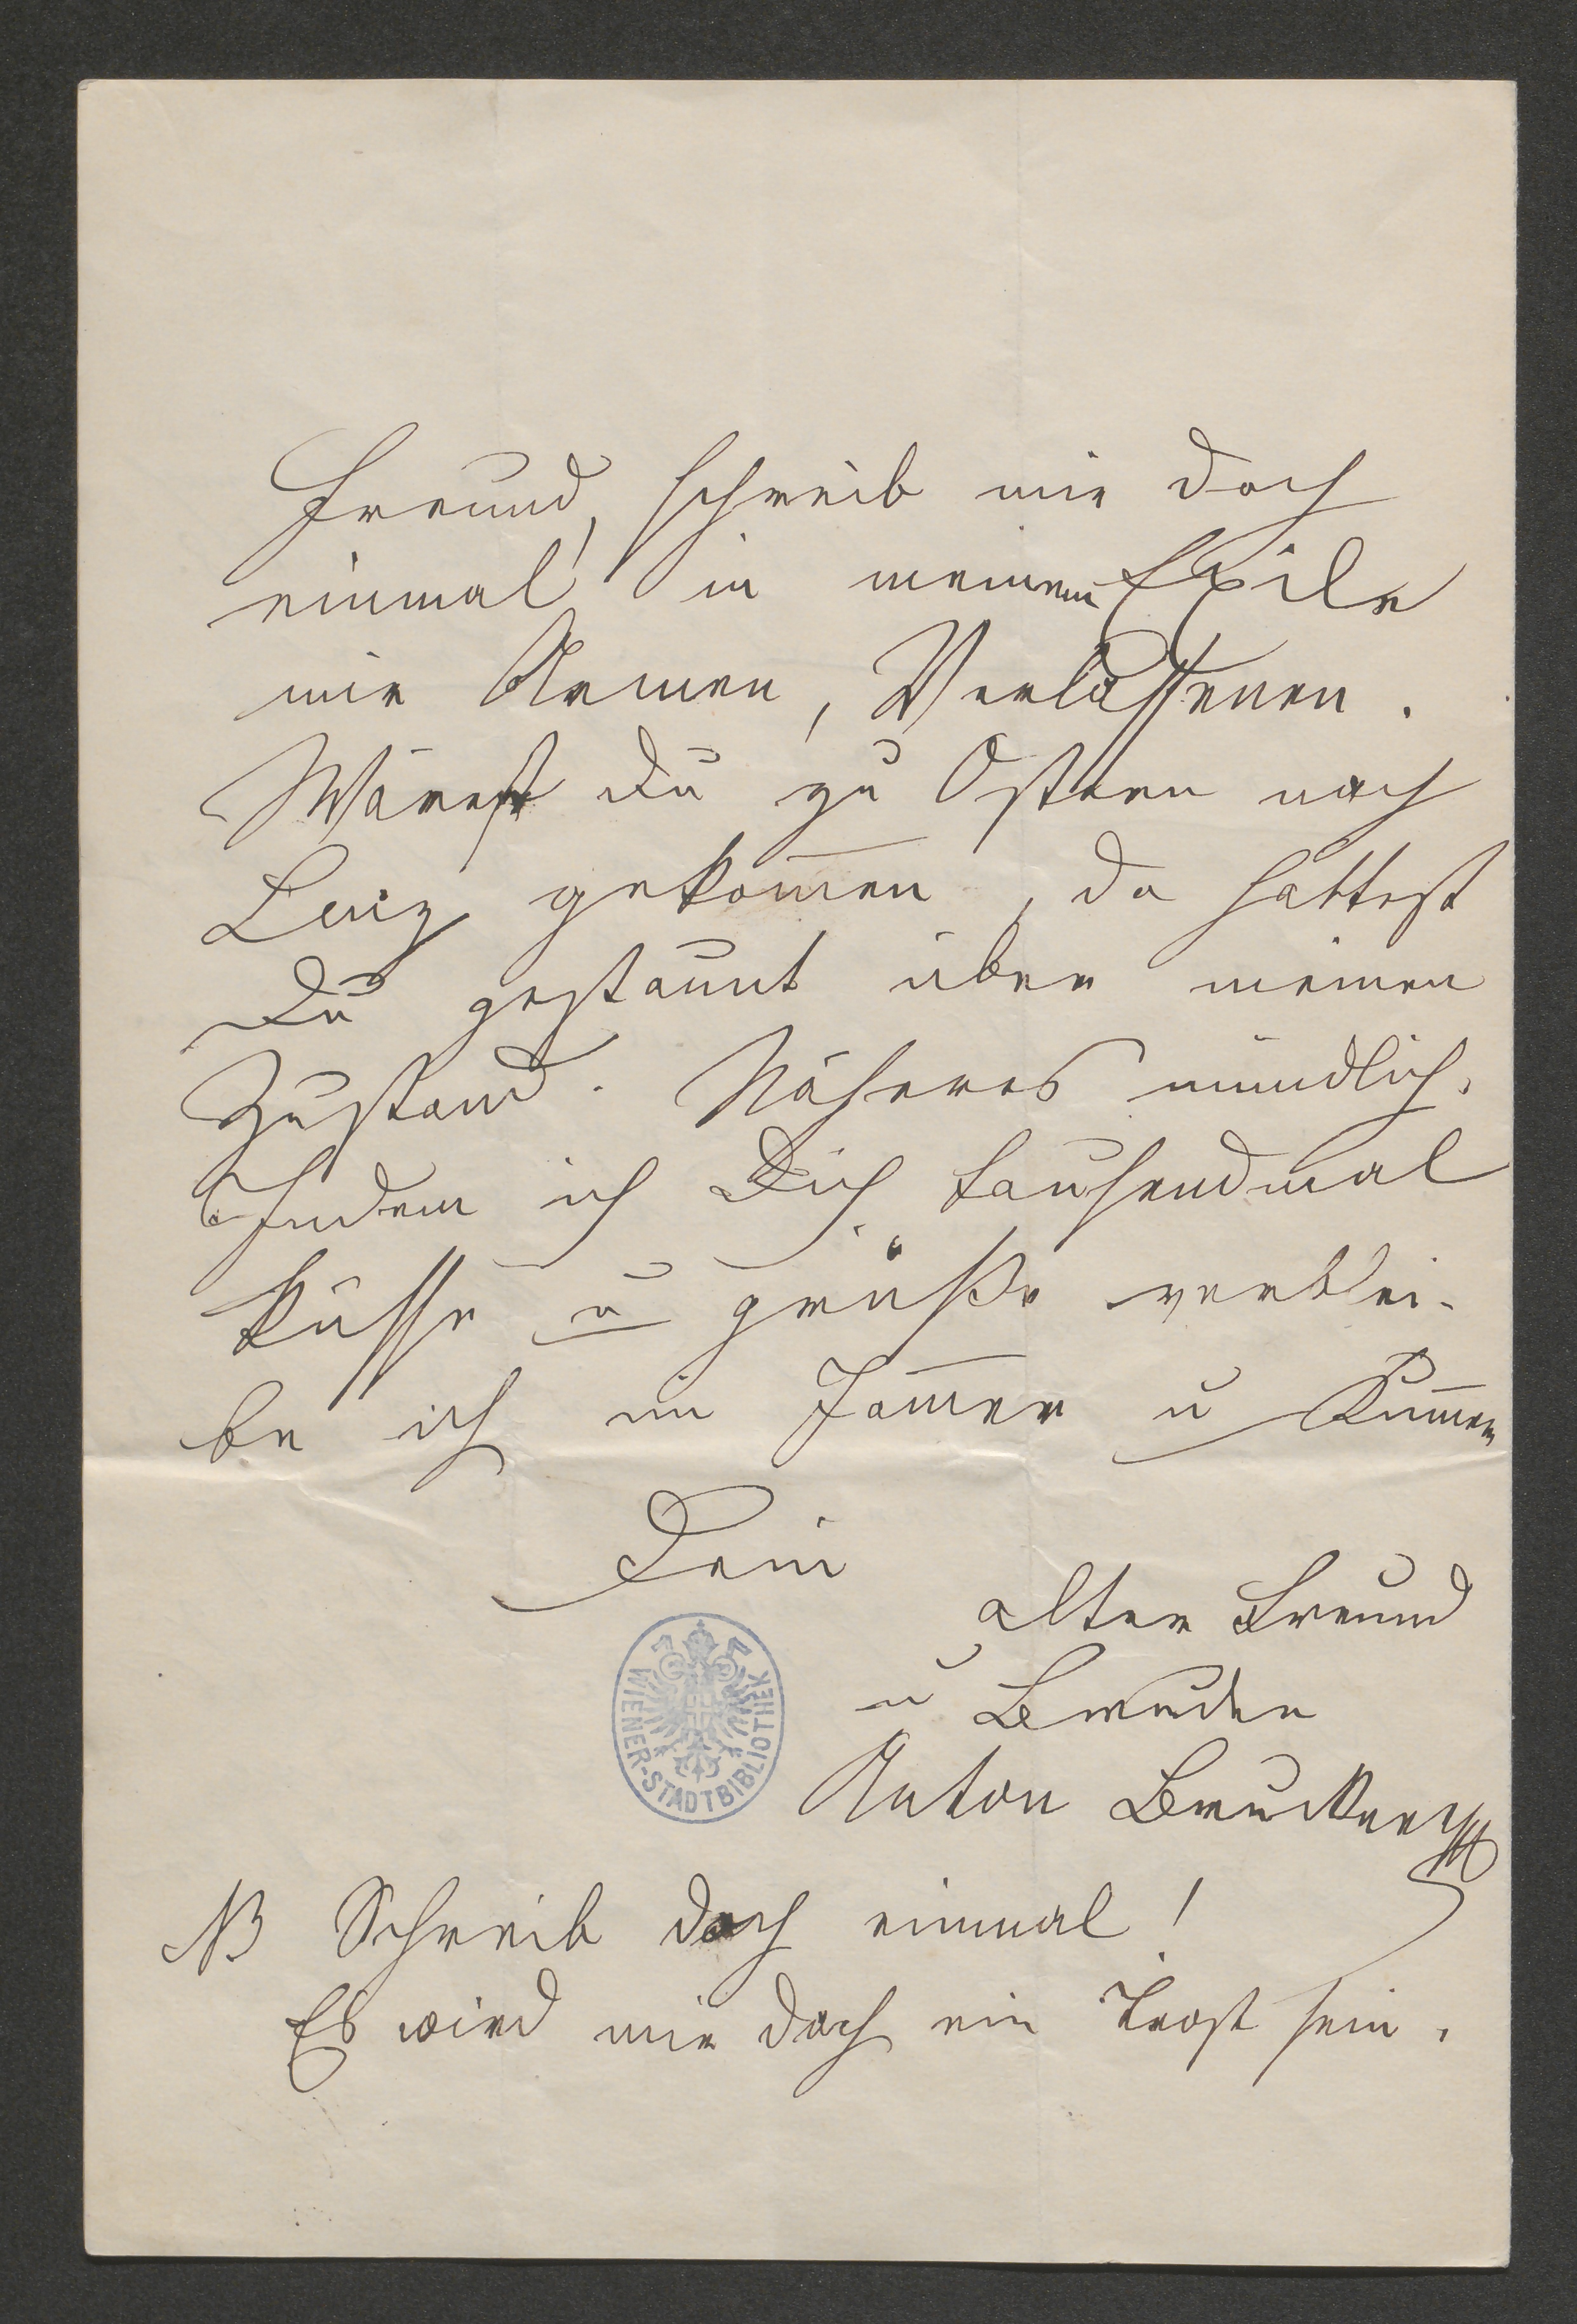 Freund, schreib mir doch
einmal! in meinem Exile
mir Armen, Verlassenen.
Wärest Du zu Ostern nach
Linz gekom̅en, da hättest
Du gestaunt über meinen
Zustand. Näheres mündlich.
Indem ich Dich tausendmal
küsse u grüße verblei-
be ich im Jam̅er u Kum̅er
Dein
alter Freund
u Bruder
Anton Bruckner
NB Schreib doch einmal!
Es wird mir doch ein Trost sein.
WIENER-STADTBIBLIOTHEK